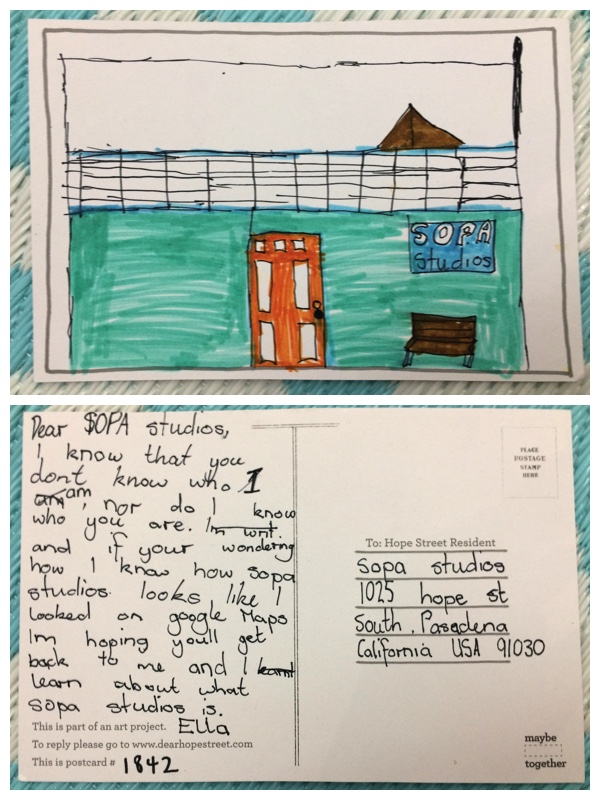 SOPA
studios
Dear SOPA studios,
I know that you
dont know who I
am am, nor do I know
who you are. Im writ.
and if your wondering
how I know how sopa
studios looks like I
looked on google Maps
Im hoping youll get
back to me and I learnt
learn about what
sopa studios is.
This is part of an art project. Ella
To reply please go to www.dearhopestreet.com
This is postcard # 1842
PLACE
POSTAGE
STAMP
HERE
To: Hope Street Resident
Sopa studios
1025 hope st
South, Pasadena
California USA 91030
maybe
together